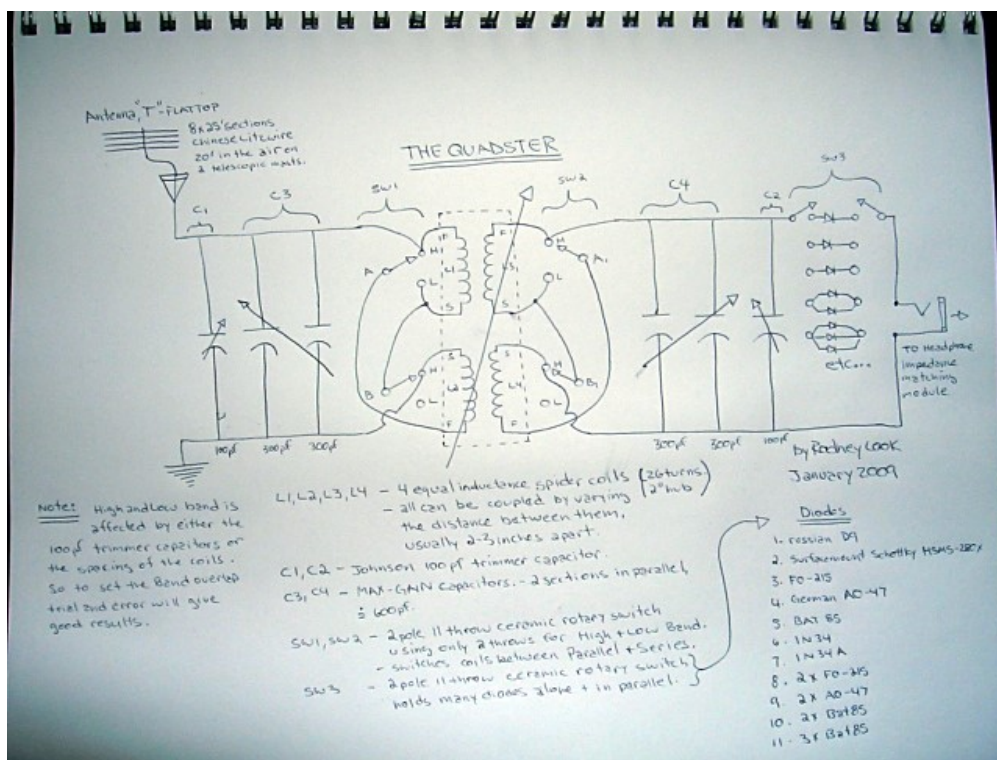 Antenna, "T"-FLATTOP
8x25' sections
Chinese Litzwire
20' in the air on
2 telescopic masts.
THE QUADSTER
C1
C3
SW1
SW2
C4
C2
SW3
F
H
A
L
L1
S
F
H
A1
L
L3
S
S
H
B
L
L2
F
S
H
B1
L
L4
F
etc...
TO Headphone
impedance
matching
module
100pf
300pf
300pf
300pf
300pf
100pf
by Rodney Cook
January 2009
Note: High and Low band is
affected by either the
100pf trimmer capacitors or
the spacing of the coils.
So to set the Band overlap
trial and error will give
good results.
L1, L2, L3, L4 - 4 equal inductance spider coils (26 turns. 2" hub)
- all can be coupled by varying
the distance between them,
usually 2-3 inches apart.
C1, C2 - Johnson 100pf trimmer capacitor.
C3, C4 - MAX-GAIN Capacitors. - 2 sections in parallel,
600pf.
SW1, SW2 - 2pole 11throw ceramic rotary switch
using only 2 throws for High + Low Band.
- switches coils between Parallel + Series.
SW3 - 2pole 11throw ceramic rotary switch
holds many diodes alone + in parallel.
Diodes
1. russian D9
2. Surfacemount Schottky HSMS-282x
3. FO-215
4. German AO-47
5. BAT 85
6. IN34
7. IN34A
8. 2x FO-215
9. 2x AO-47
10. 2x Bat85
11. 3x Bat85